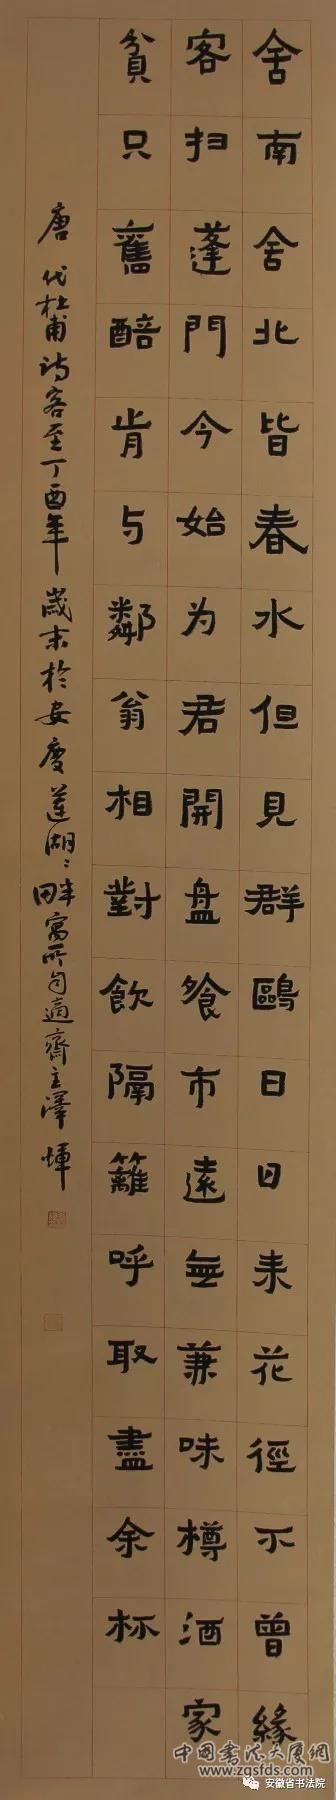 舍南舍北皆春水但見群鷗日日来花徑不曾緣
客扫蓬門今始为君開盘飧市遠無兼味樽酒家
貧只舊醅肯与鄰翁相對飲隔籬呼取盡余杯
唐代杜甫诗客至丁酉年歲末於安慶蓮湖〻畔寓所自適齋主澤煇
中國書法大厦網
www.zgsfds.com
安徽省书法院